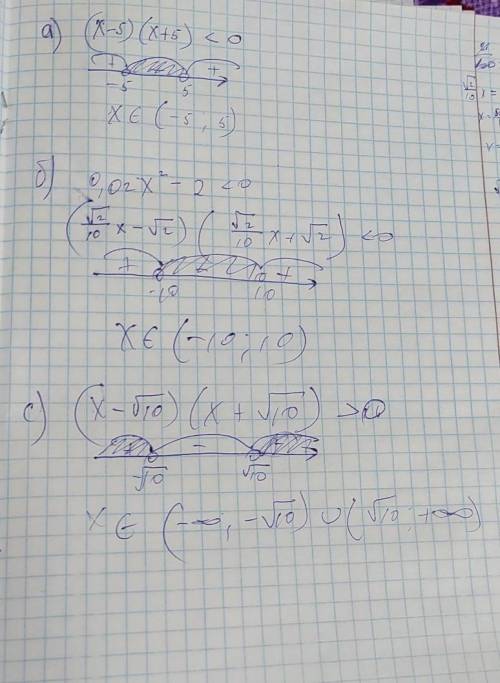 а) (x-5)(x+5) < 0
+ - +
-5 5
x ∈ (-5; 5)
б) 0,02x² - 2 < 0
(√2/10 x - √2)(√2/10 x + √2) < 0
+ - +
-10 10
x ∈ (-10; 10)
с) (x - √10)(x + √10) > 0
+ - +
-√10 √10
x ∈ (-∞; -√10) ∪ (√10; +∞)